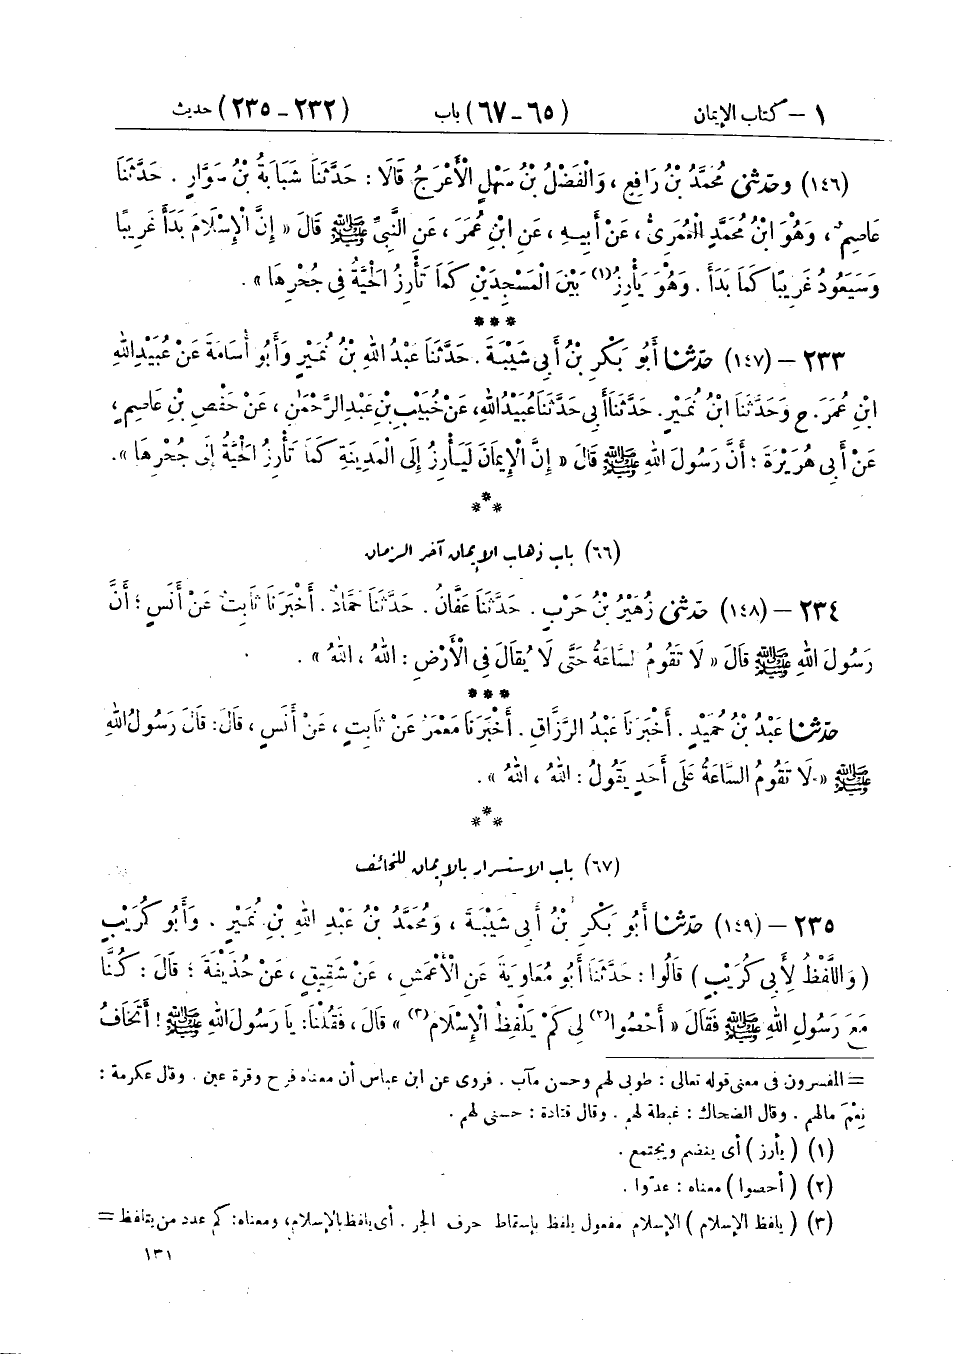 ١ – كتاب الإيمان (٦٥ – ٦٧) باب (٢٣٢ – ٢٣٥) حديث
(١٤٦) وحدثنى مُحَمَّدُ بْنُ رَافِعٍ ، وَالْفَضْلُ بْنُ سَهْلٍ الْأَعْرَجُ قَالَا : حَدَّثَنَا شَبَابَةُ بْنُ سَوَّارٍ . حَدَّثَنَا
عَاصِمٌ ، وَهُوَ ابْنُ مُحَمَّدٍ الْعُمَرِىُّ ، عَنْ أَبِيهِ ، عَنِ ابْنِ عُمَرَ ، عَنِ النَّبِىِّ ﷺ قَالَ « إِنَّ الْإِسْلَامَ بَدَأَ غَرِيبًا
وَسَيَعُودُ غَرِيبًا كَمَا بَدَأَ . وَهُوَ يَأْرِزُ(١) بَيْنَ الْمَسْجِدَيْنِ كَمَا تَأْرِزُ الْحَيَّةُ فِى جُحْرِهَا » .
***
٢٣٣ – (١٤٧) حدّثنا أَبُو بَكْرِ بْنُ أَبِى شَيْبَةَ . حَدَّثَنَا عَبْدُ اللهِ بْنُ نُمَيْرٍ وَأَبُو أُسَامَةَ عَنْ عُبَيْدِ اللهِ
ابْنِ عُمَرَ . ح وَحَدَّثَنَا ابْنُ نُمَيْرٍ . حَدَّثَنَا أَبِى حَدَّثَنَا عُبَيْدُ اللهِ ، عَنْ خُبَيْبِ بْنِ عَبْدِ الرَّحْمَٰنِ ، عَنْ حَفْصِ بْنِ عَاصِمٍ ،
عَنْ أَبِى هُرَيْرَةَ ؛ أَنَّ رَسُولَ اللهِ ﷺ قَالَ « إِنَّ الْإِيمَانَ لَيَأْرِزُ إِلَى الْمَدِينَةِ كَمَا تَأْرِزُ الْحَيَّةُ إِلَى جُحْرِهَا » .
***
(٦٦) باب ذهاب الإيمان آخر الزمان
٢٣٤ – (١٤٨) حدّثنى زُهَيْرُ بْنُ حَرْبٍ . حَدَّثَنَا عَفَّانُ . حَدَّثَنَا حَمَّادٌ . أَخْبَرَنَا ثَابِتٌ عَنْ أَنَسٍ ؛ أَنَّ
رَسُولَ اللهِ ﷺ قَالَ « لَا تَقُومُ السَّاعَةُ حَتَّى لَا يُقَالَ فِى الْأَرْضِ : اللهُ ، اللهُ » .
***
حدّثنا عَبْدُ بْنُ حُمَيْدٍ . أَخْبَرَنَا عَبْدُ الرَّزَّاقِ . أَخْبَرَنَا مَعْمَرٌ عَنْ ثَابِتٍ ، عَنْ أَنَسٍ ، قَالَ : قَالَ رَسُولُ اللهِ
ﷺ « لَا تَقُومُ السَّاعَةُ عَلَى أَحَدٍ يَقُولُ : اللهُ ، اللهُ » .
***
(٦٧) باب الاستسرار بالإيمان للخائف
٢٣٥ – (١٤٩) حدّثنا أَبُو بَكْرِ بْنُ أَبِى شَيْبَةَ ، وَمُحَمَّدُ بْنُ عَبْدِ اللهِ بْنِ نُمَيْرٍ . وَأَبُو كُرَيْبٍ
( وَاللَّفْظُ لِأَبِى كُرَيْبٍ ) قَالُوا : حَدَّثَنَا أَبُو مُعَاوِيَةَ عَنِ الْأَعْمَشِ ، عَنْ شَقِيقٍ ، عَنْ حُذَيْفَةَ ؛ قَالَ : كُنَّا
مَعَ رَسُولِ اللهِ ﷺ فَقَالَ « أَحْصُوا(٢) لِى كَمْ يَلْفِظُ الْإِسْلَامَ(٣) » قَالَ ، فَقُلْنَا : يَا رَسُولَ اللهِ ﷺ ! أَتَخَافُ
= المفسرون فى معنى قوله تعالى : طوبى لهم وحسن مآب . فروى عن ابن عباس أن معناه فرح وقرة عين . وقال عكرمة :
نِعْمَ مالهم . وقال الضحاك : غبطة لهم . وقال قتادة : حسنى لهم .
(١) ( يأرز ) أى ينضم ويجتمع .
(٢) ( أحصوا ) معناه : عدّوا .
(٣) ( يلفظ الإسلام ) الإسلام مفعول يلفظ بإسقاط حرف الجر . أى يلفظ بالإسلام ، ومعناه : كم عدد من يتلفظ =
١٣١